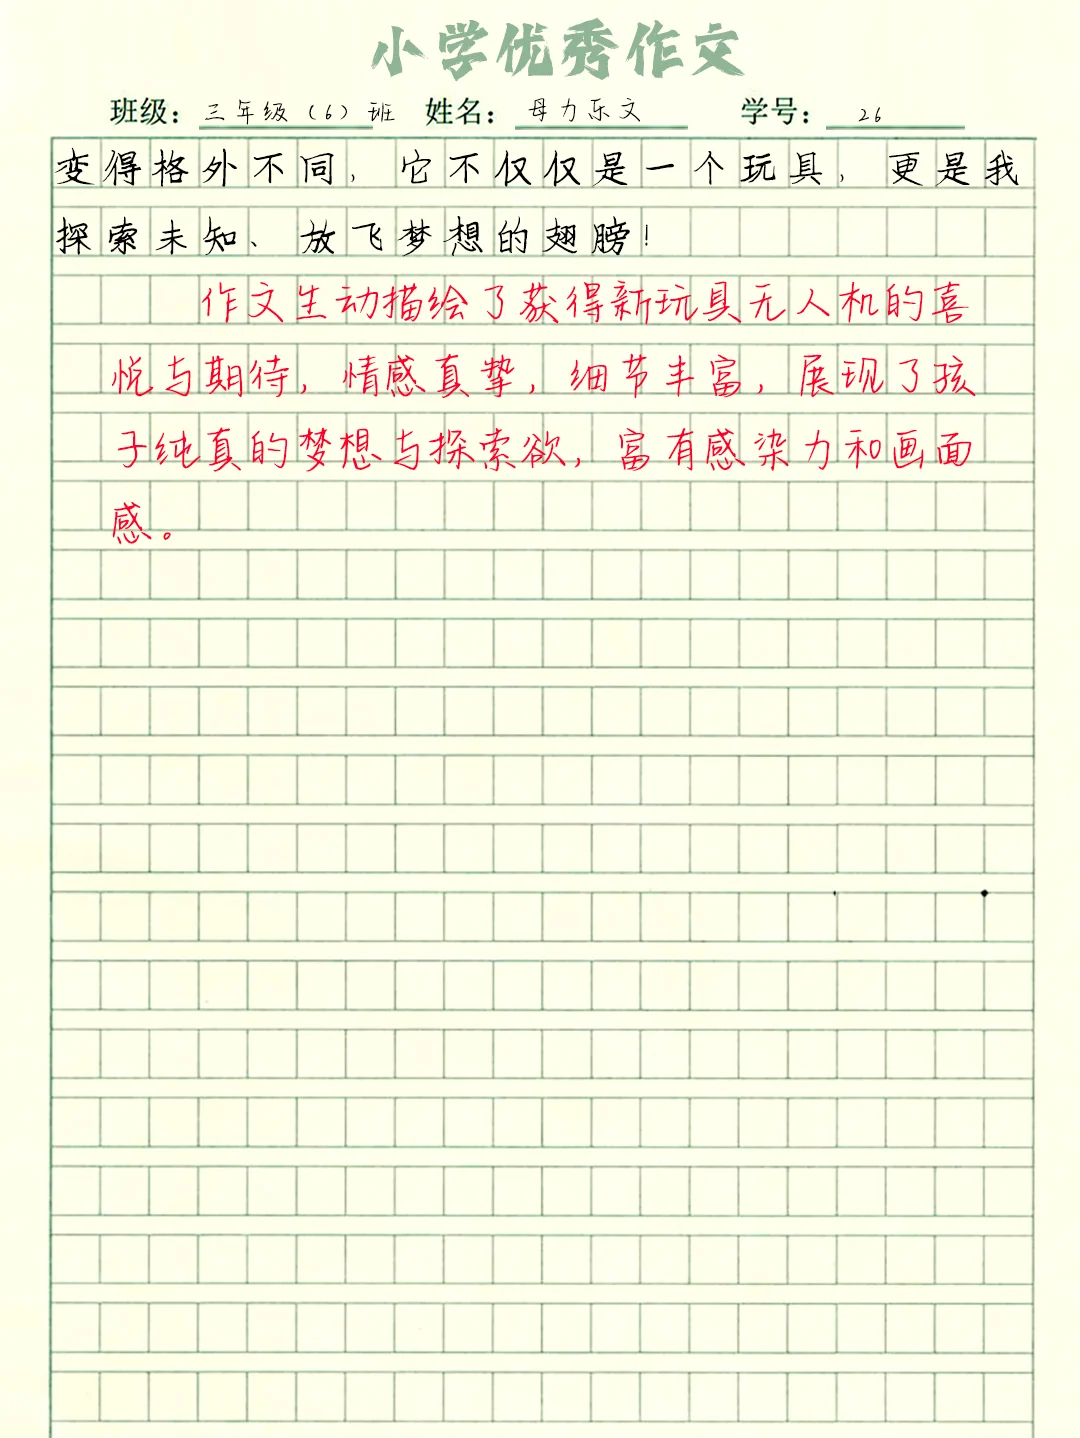 小学优秀作文
班级：三年级（6）班 姓名：母力乐文 学号：26
变得格外不同，它不仅仅是一个玩具，更是我
探索未知、放飞梦想的翅膀！
作文生动描绘了获得新玩具无人机的喜
悦与期待，情感真挚，细节丰富，展现了孩
子纯真的梦想与探索欲，富有感染力和画面
感。